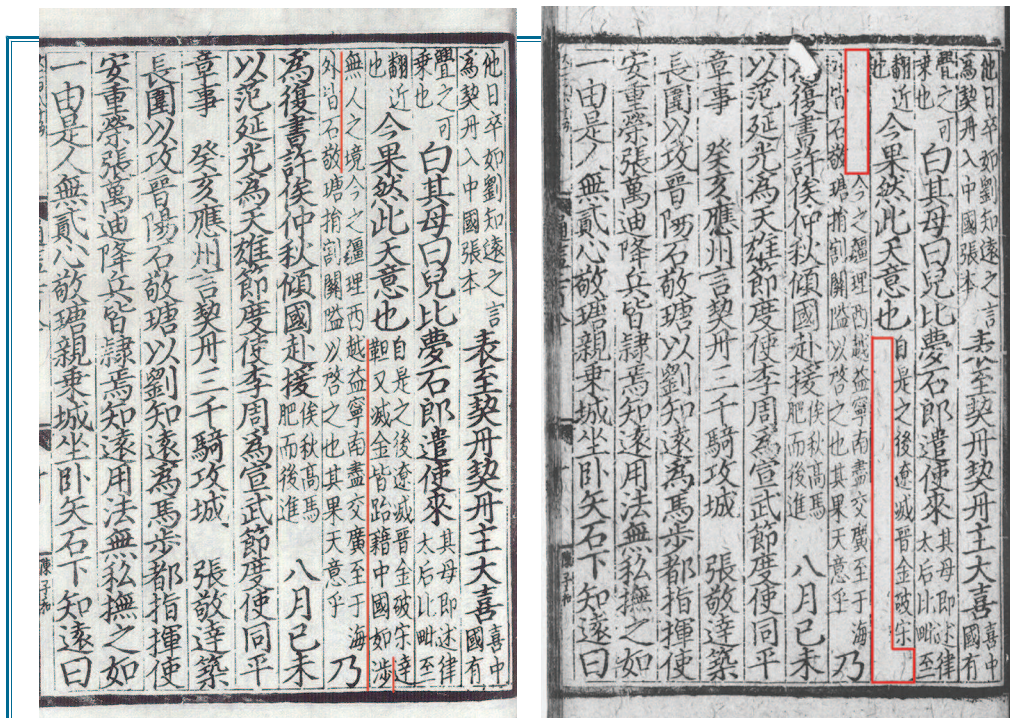 他日卒如劉知遠之言
為契丹入中國張本
表至契丹契丹主大喜
喜中
國有
舋之可
乗也
白其母曰兒比夢石郎遣使來
其母即述律
太后比毗至
翻近
也
今果然此天意也
自是之後遼滅晉金破宋達
靼又滅金皆跆藉中國如涉
無人之境今之疆理西越益寧南盡交廣至于海
外皆石敬瑭捎割關隘以啓之也其果天意乎
乃
為復書許俟仲秋傾國赴援
俟秋高馬
肥而後進
八月己未
以范延光為天雄節度使李周為宣武節度使同平
章事 癸亥應州言契丹三千騎攻城 張敬達築
長圍以攻晉陽石敬瑭以劉知遠為馬步都指揮使
安重榮張萬迪降兵皆隸焉知遠用法無私撫之如
一由是人無貳心敬瑭親乘城坐臥矢石下知遠曰
陳子和
他日卒如劉知遠之言
為契丹入中國張本
表至契丹契丹主大喜
喜中
國有
舋之可
乗也
白其母曰兒比夢石郎遣使來
其母即述律
太后比毗至
翻近
也
今果然此天意也
自是之後遼滅晉金破宋
今之疆理西越益寧南盡交廣至于海
外皆石敬瑭捎割關隘以啓之也其果天意乎
乃
為復書許俟仲秋傾國赴援
俟秋高馬
肥而後進
八月己未
以范延光為天雄節度使李周為宣武節度使同平
章事 癸亥應州言契丹三千騎攻城 張敬達築
長圍以攻晉陽石敬瑭以劉知遠為馬步都指揮使
安重榮張萬迪降兵皆隸焉知遠用法無私撫之如
一由是人無貳心敬瑭親乘城坐臥矢石下知遠曰
陳子和